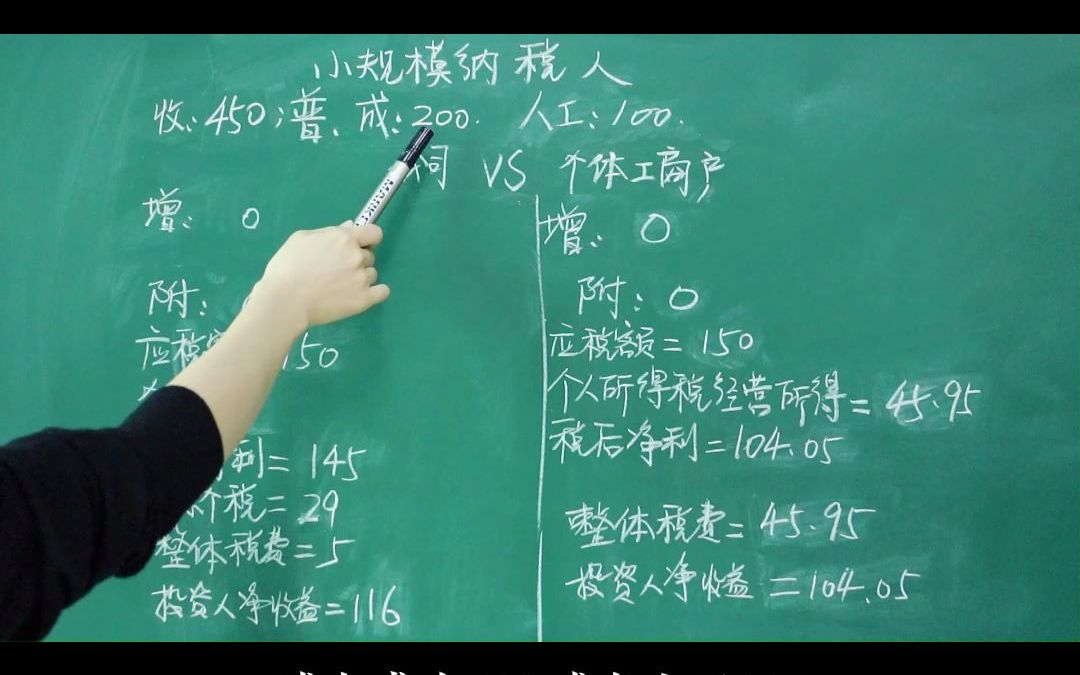 小规模纳税人
收:450;普. 成:200. 人工:100.
司 VS 个体工商户
增: 0
附:
应税 150
利=145
个税=29
整体税费=5
投资人净收益=116
增: 0
附: 0
应税额=150
个人所得税经营所得=45.95
税后净利=104.05
整体税费=45.95
投资人净收益=104.05